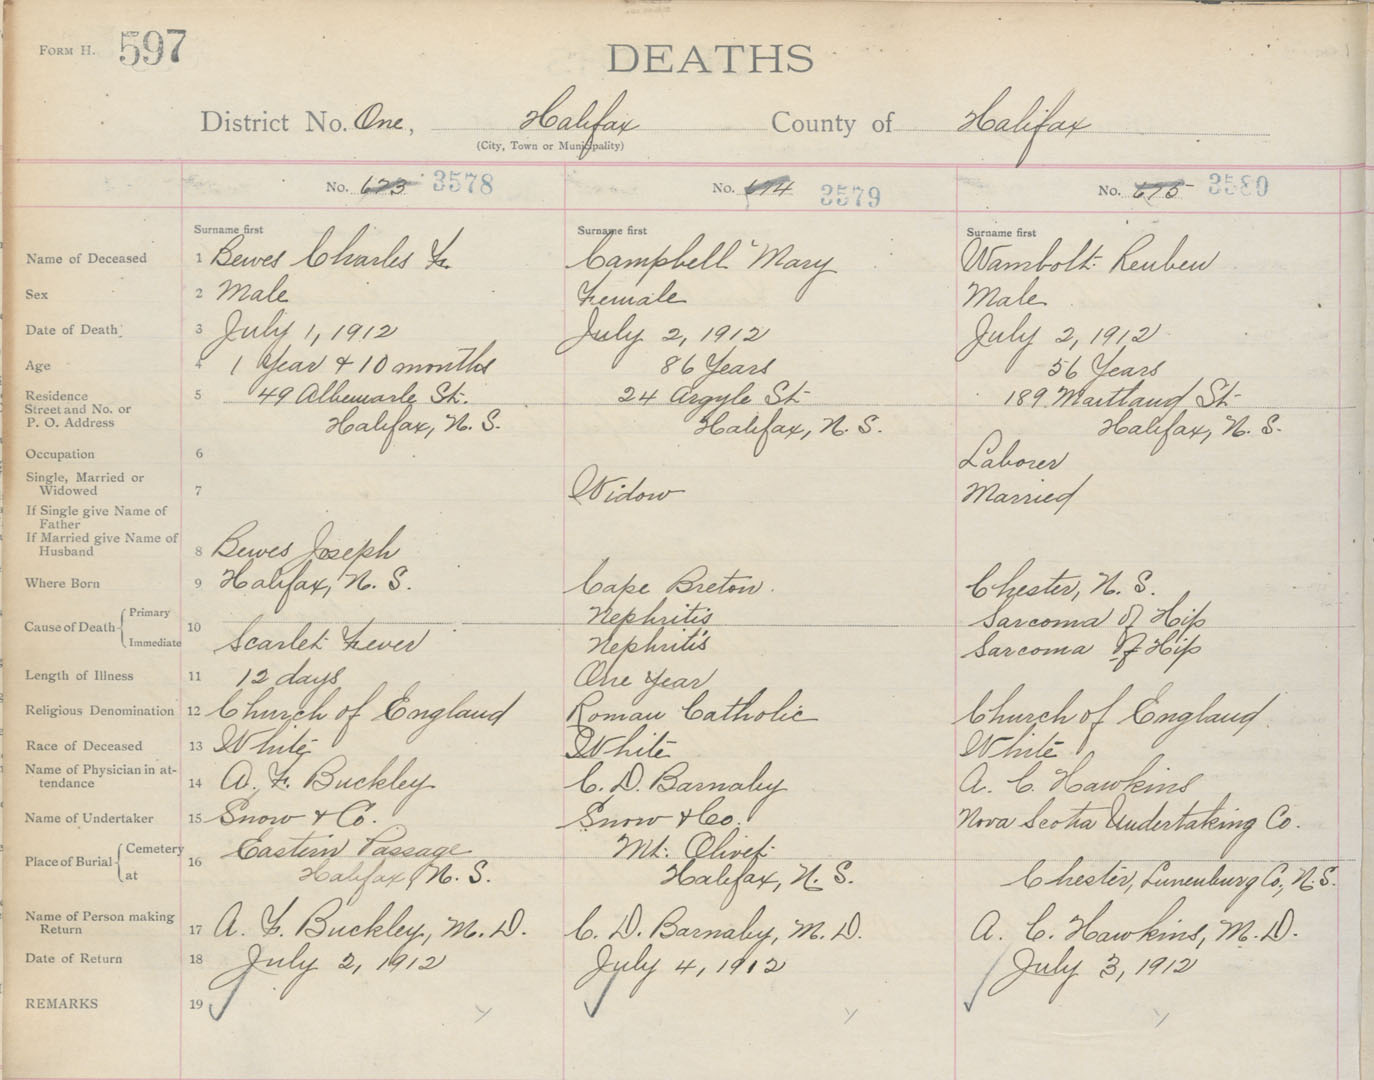 FORM H. 597
DEATHS
District No. One, Halifax County of Halifax
(City, Town or Municipality)
No. 673 3578 No. 674 3579 No. 675 3580
Surname first Surname first Surname first
Name of Deceased 1 Bewes Charles F. Campbell Mary Wambolt Reuben
Sex 2 Male Female Male
Date of Death 3 July 1, 1912 July 2, 1912 July 2, 1912
Age 4 1 Year & 10 months 86 Years 56 Years
Residence 5 49 Albemarle St. 24 Argyle St. 189 Maitland St.
Street and No. or
P. O. Address Halifax, N. S. Halifax, N. S. Halifax, N. S.
Occupation 6 Laborer
Single, Married or
Widowed 7 Widow Married
If Single give Name of
Father
If Married give Name of
Husband 8 Bewes Joseph
Where Born 9 Halifax, N. S. Cape Breton. Chester, N. S.
Cause of Death Primary 10 Nephritis Sarcoma of Hip
Immediate Scarlet Fever Nephritis Sarcoma of Hip
Length of Illness 11 12 days One Year
Religious Denomination 12 Church of England Roman Catholic Church of England
Race of Deceased 13 White White White
Name of Physician in at-
tendance 14 A. F. Buckley C. D. Barnaby A. C. Hawkins
Name of Undertaker 15 Snow & Co. Snow & Co. Nova Scotia Undertaking Co.
Place of Burial Cemetery 16 Eastern Passage Mt. Olivet
at Halifax, N. S. Halifax, N. S. Chester, Lunenburg Co., N. S.
Name of Person making
Return 17 A. F. Buckley, M. D. C. D. Barnaby, M. D. A. C. Hawkins, M. D.
Date of Return 18 July 2, 1912 July 4, 1912 July 3, 1912
REMARKS 19